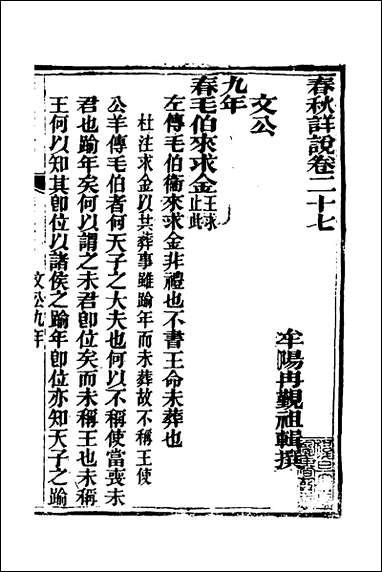 春秋詳說卷二十七
牟陽冉覲祖輯撰
文公
九年
春毛伯來求金王求止此
左傳毛伯衛來求金非禮也不書王命未葬也
杜注求金以共葬事雖踰年而未葬故不稱王使
公羊傳毛伯者何天子之大夫也何以不稱使當喪未
君也踰年矣何以謂之未君卽位矣而未稱王也未稱
王何以知其卽位以諸侯之踰年卽位亦知天子之踰
文公九年